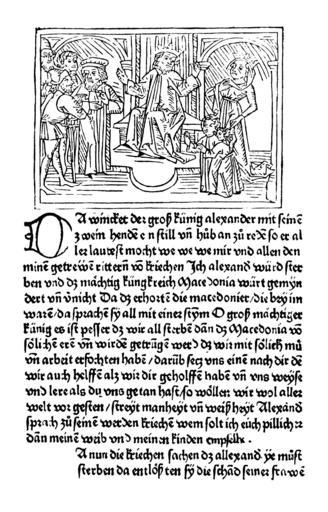 DA wincket der groß künig alexander mit seinē
zwein hendē ē n still vñ hůb an zů redē so er al
ler lautest mocht we we we mir und allen den
minē getrewē rittern vō kriechen Ich alexand würd ster
ben vnd dz mächtig künigkreich Macedonia würt gemyn
dert vñ vnicht Da dz erhortē die macedonier / die bey im
warē / da sprachē sy all mit einer stym O groß mächtiger
künig es ist pesser dz wir all sterbē dān dz Macedonia vō
sölichē erē vñ wirdē getrügē werd dz wir mit sölich mü
vñ arbeit erfochten habē / darüb secz vns einē nach dir dē
wir auch helffē alz wir dir geholffē habē vñ vns weyse
vnd lere als du vns getan hast / so wöllen wir wol aller
welt vor gesten / streyt manheyt vñ weißheyt Alexand
sprach zů seinē werden kriechē wem solt ich euch pillicher
dān meinem weib vnd meinen kinden empfelhē .
A nun die kriechen sachen dz allexand ye müst
sterben da entlößten sy die schād seiner frawē